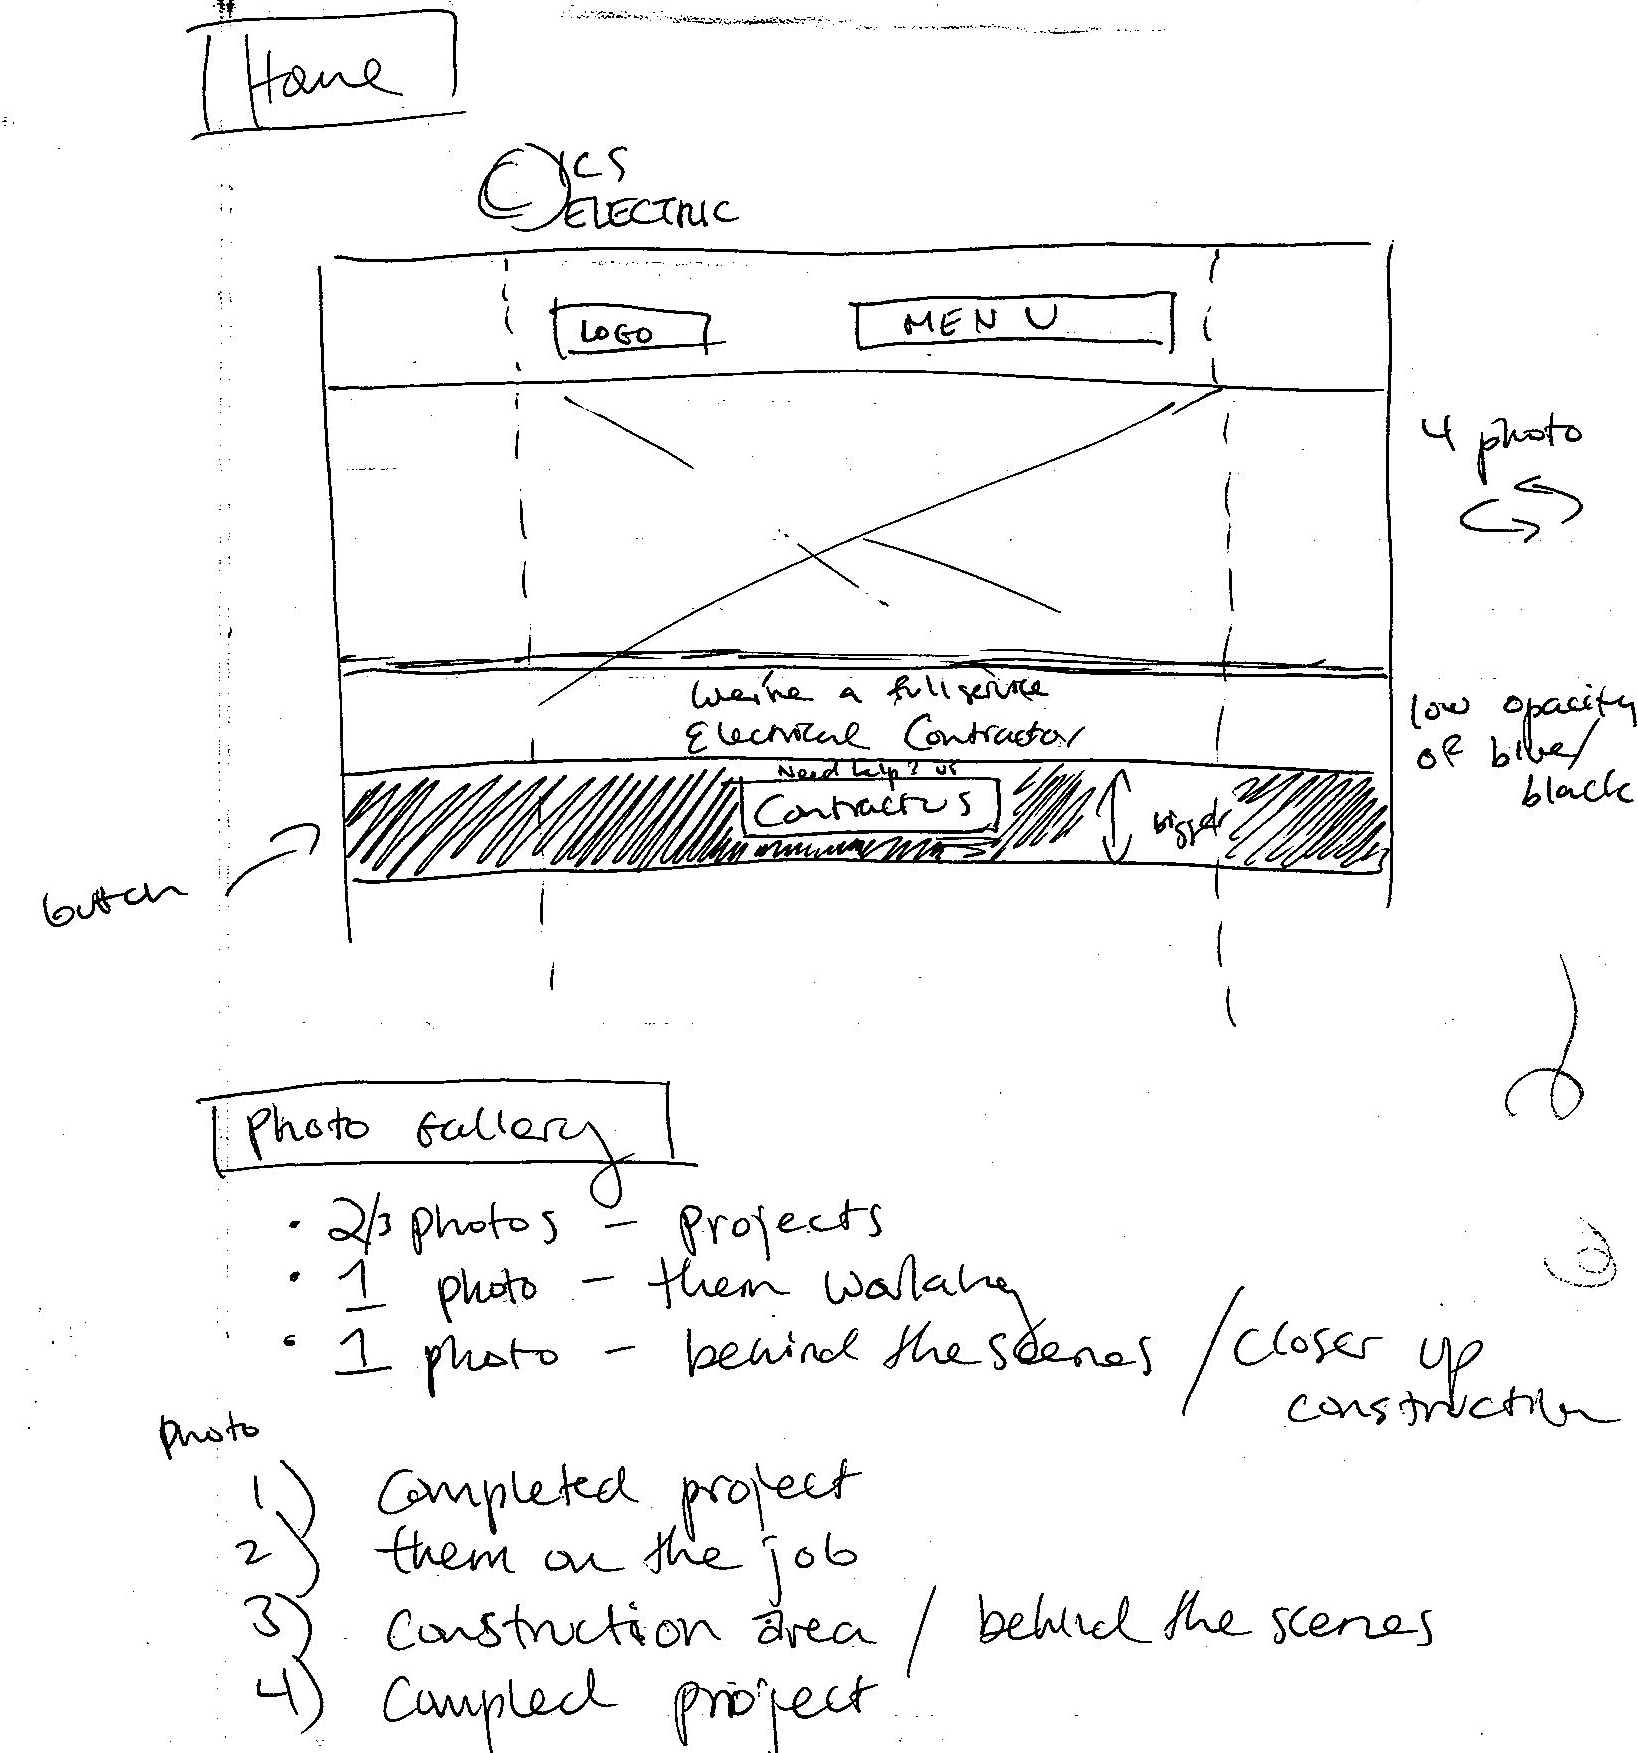 Home
CS
ELECTRIC
LOGO
MENU
4 photo
We're a full service
Electrical Contractor
low opacity
of blue/
black
Need help?
Contact us
bigger
button
Photo Gallery
• 2/3 photos - projects
• 1 photo - them working
• 1 photo - behind the scenes / closer up
construction
Photo
1) Completed project
2) them on the job
3) Construction area / behind the scenes
4) Compled project